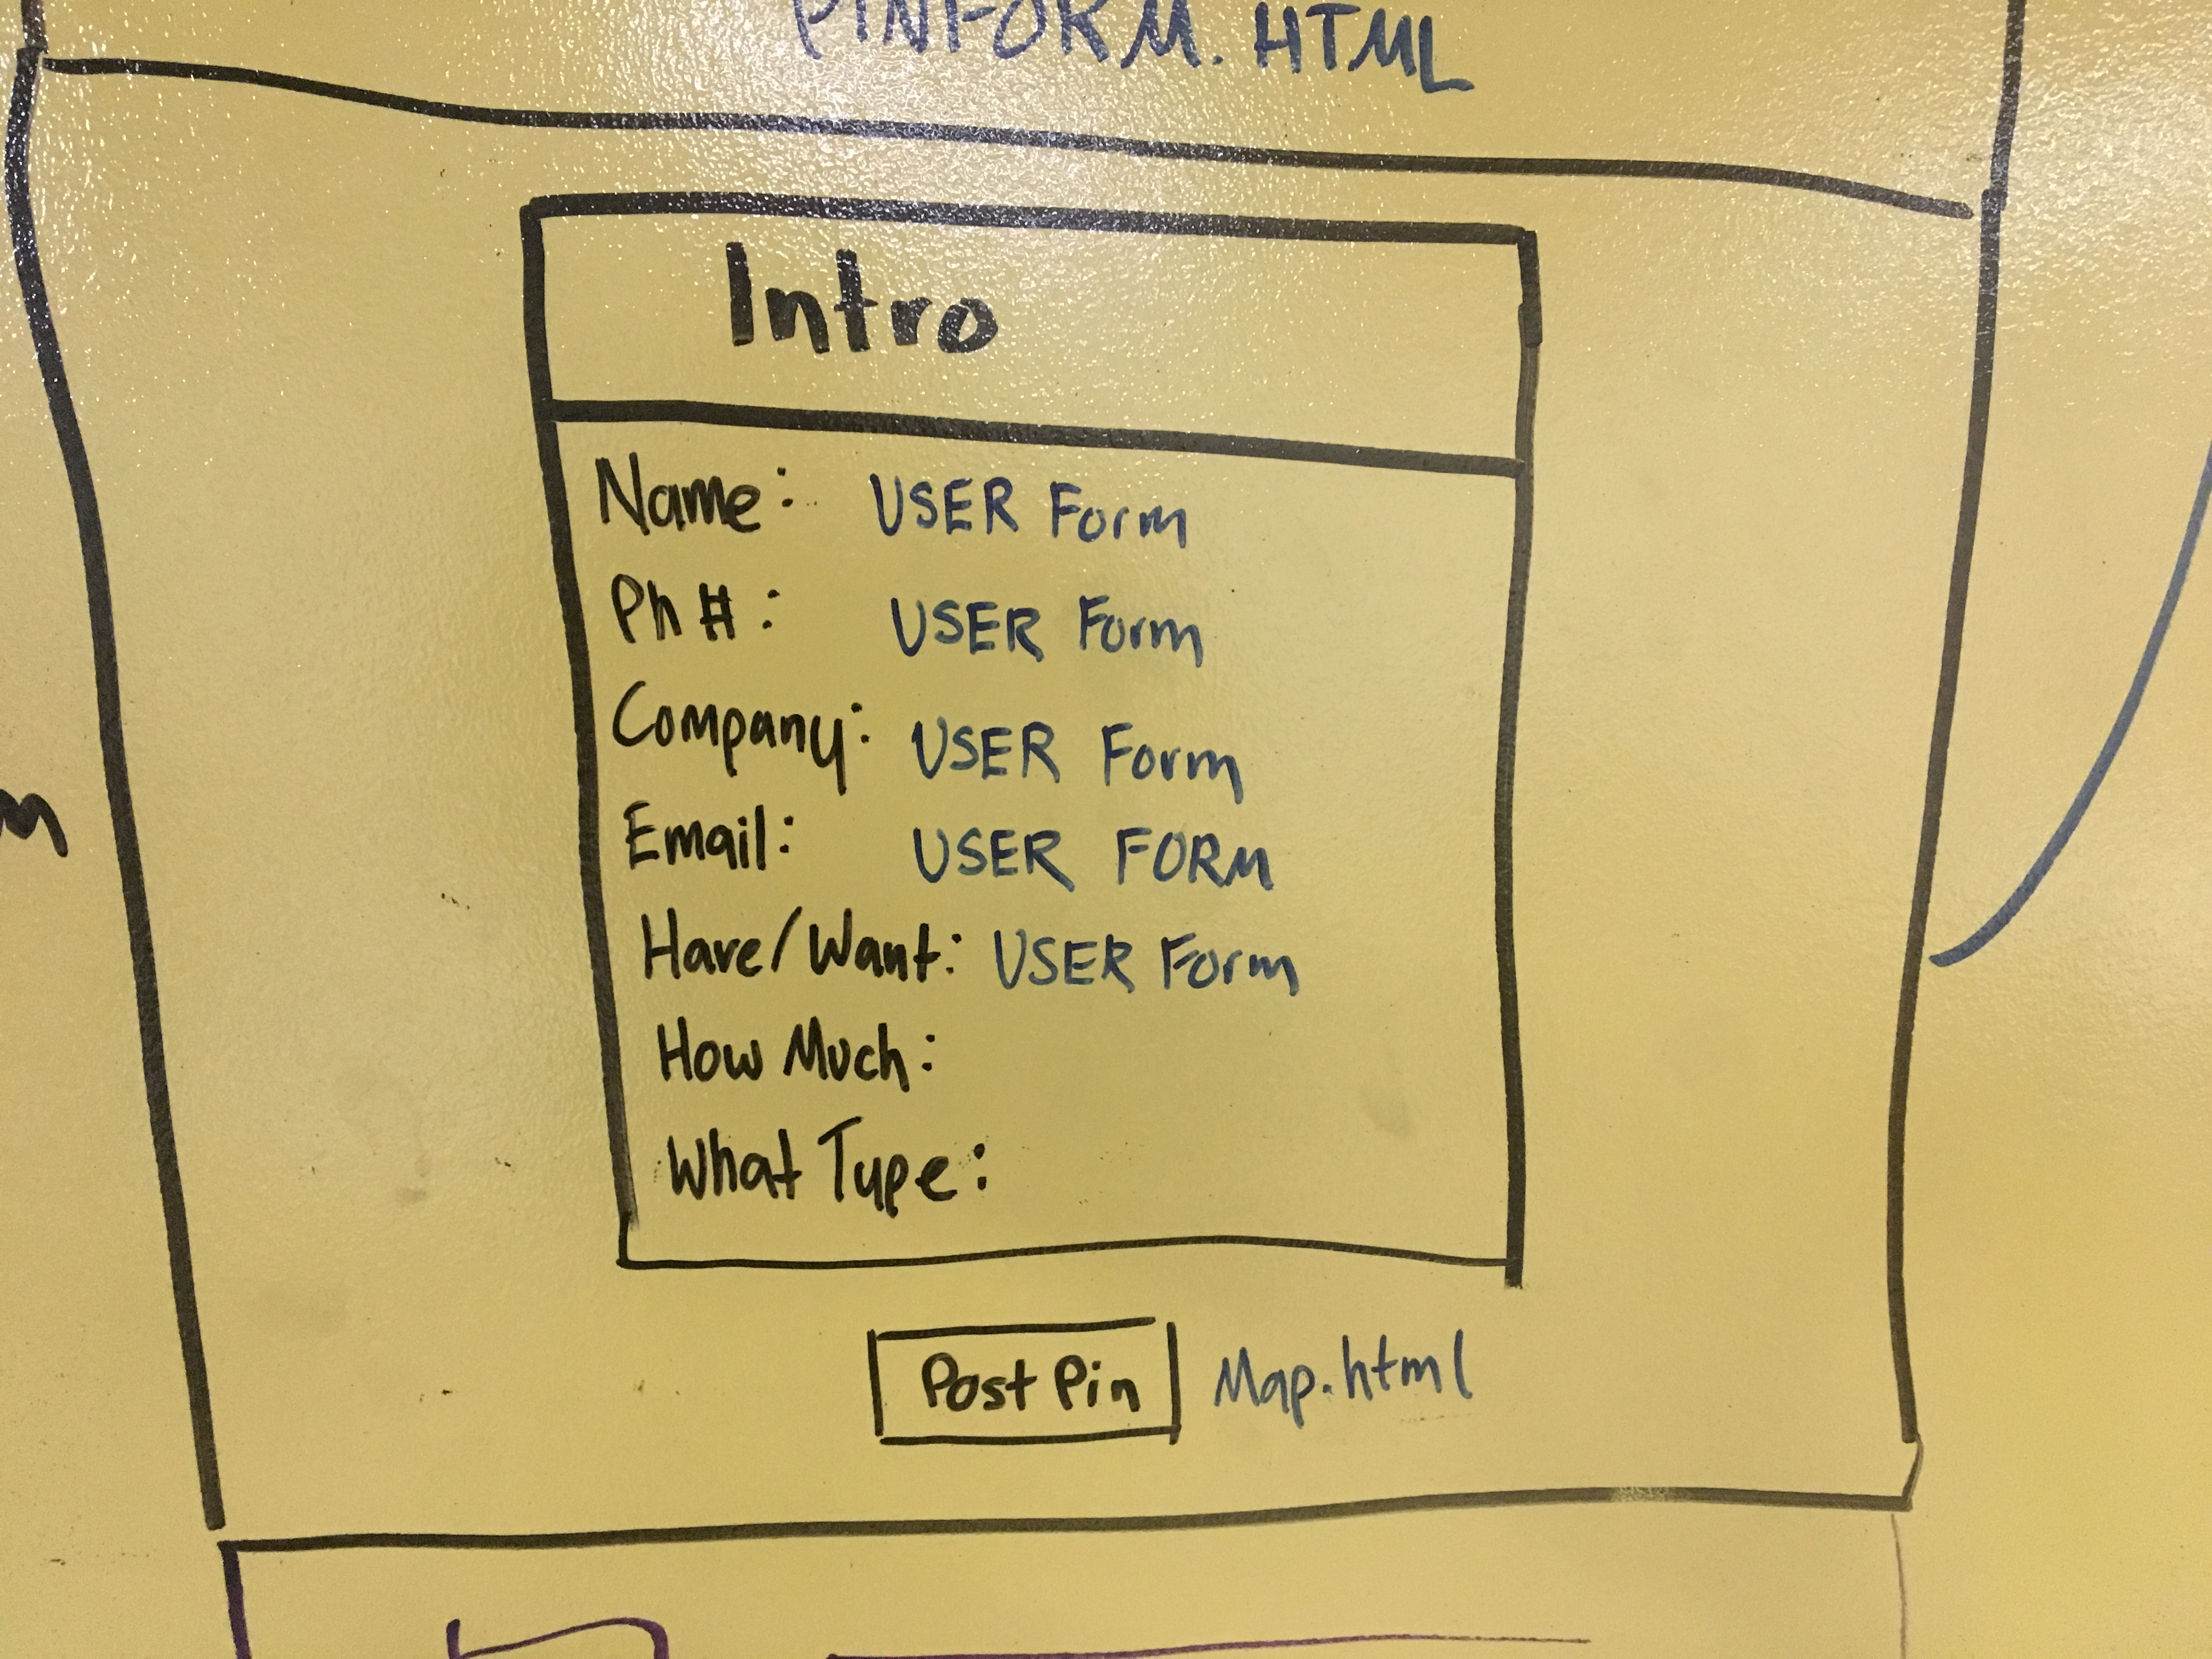 PINFORM.HTML
Intro
Name: USER Form
Ph #: USER Form
Company: USER Form
Email: USER FORM
Have/Want: USER Form
How Much:
What Type:
Post Pin Map.html